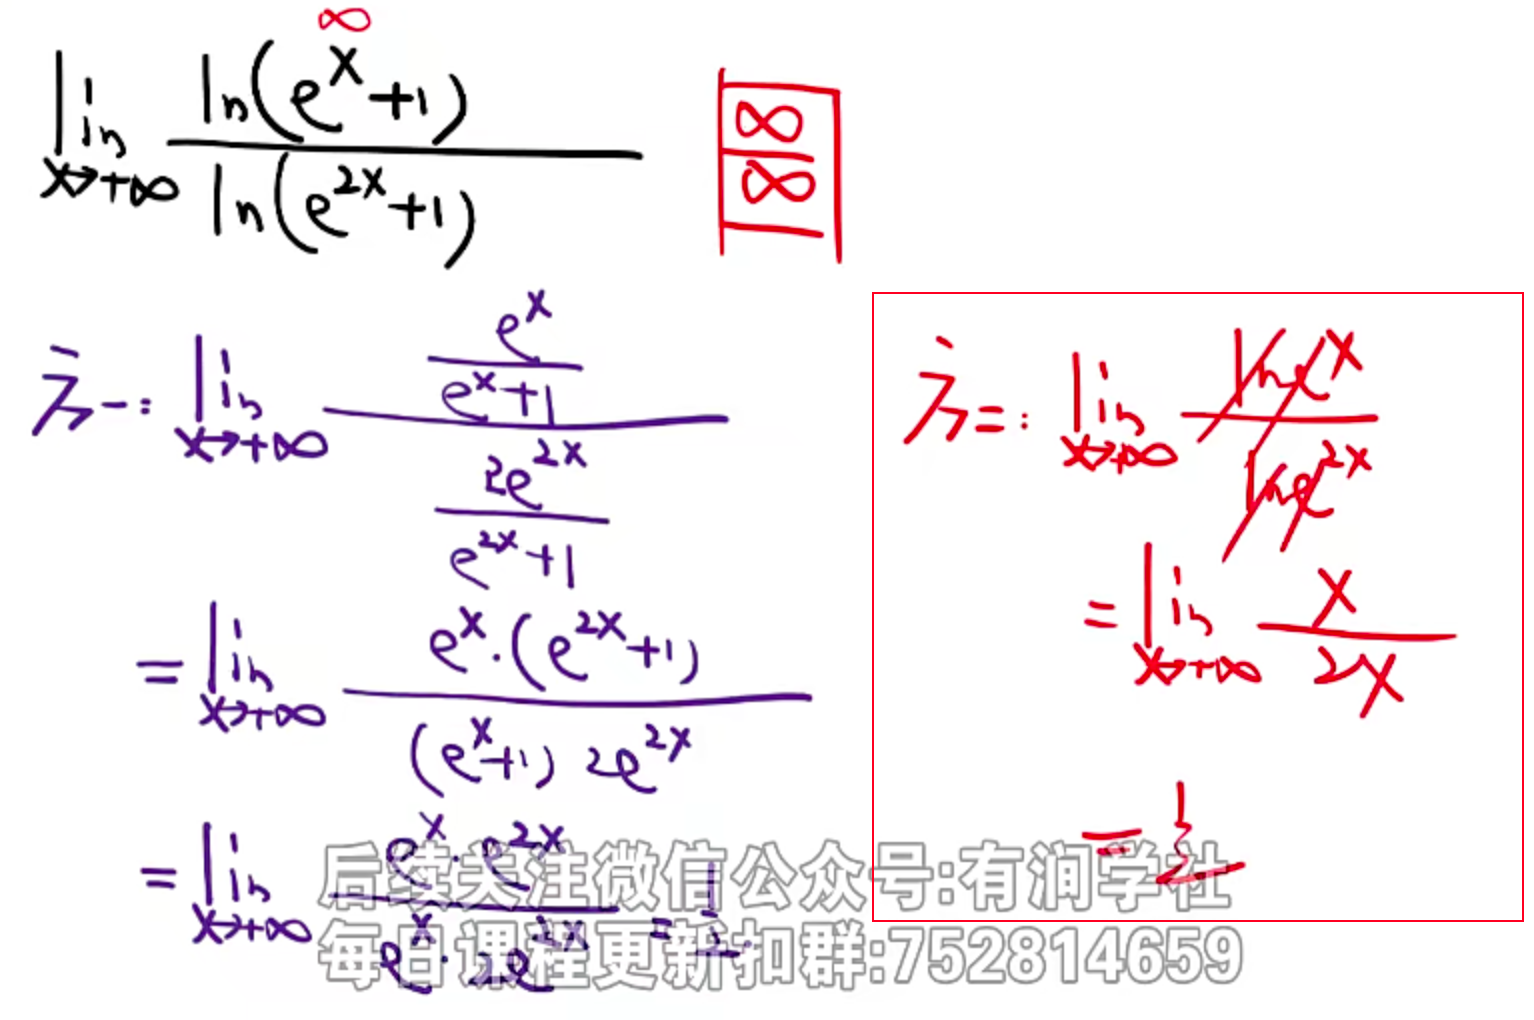 lim x→+∞ ln(e^x+1) / ln(e^{2x}+1)
∞
∞/∞
方一: lim x→+∞ (e^x/(e^x+1)) / (2e^{2x}/(e^{2x}+1))
= lim x→+∞ e^x·(e^{2x}+1) / (e^x+1) 2e^{2x}
= lim x→+∞ e^x·e^{2x} / e^x·2e^{2x} = 1/2.
方二: lim x→+∞ lne^x / lne^{2x}
= lim x→+∞ x / 2x
= 1/2
后续关注微信公众号:有润学社
每日课程更新扣群:752814659